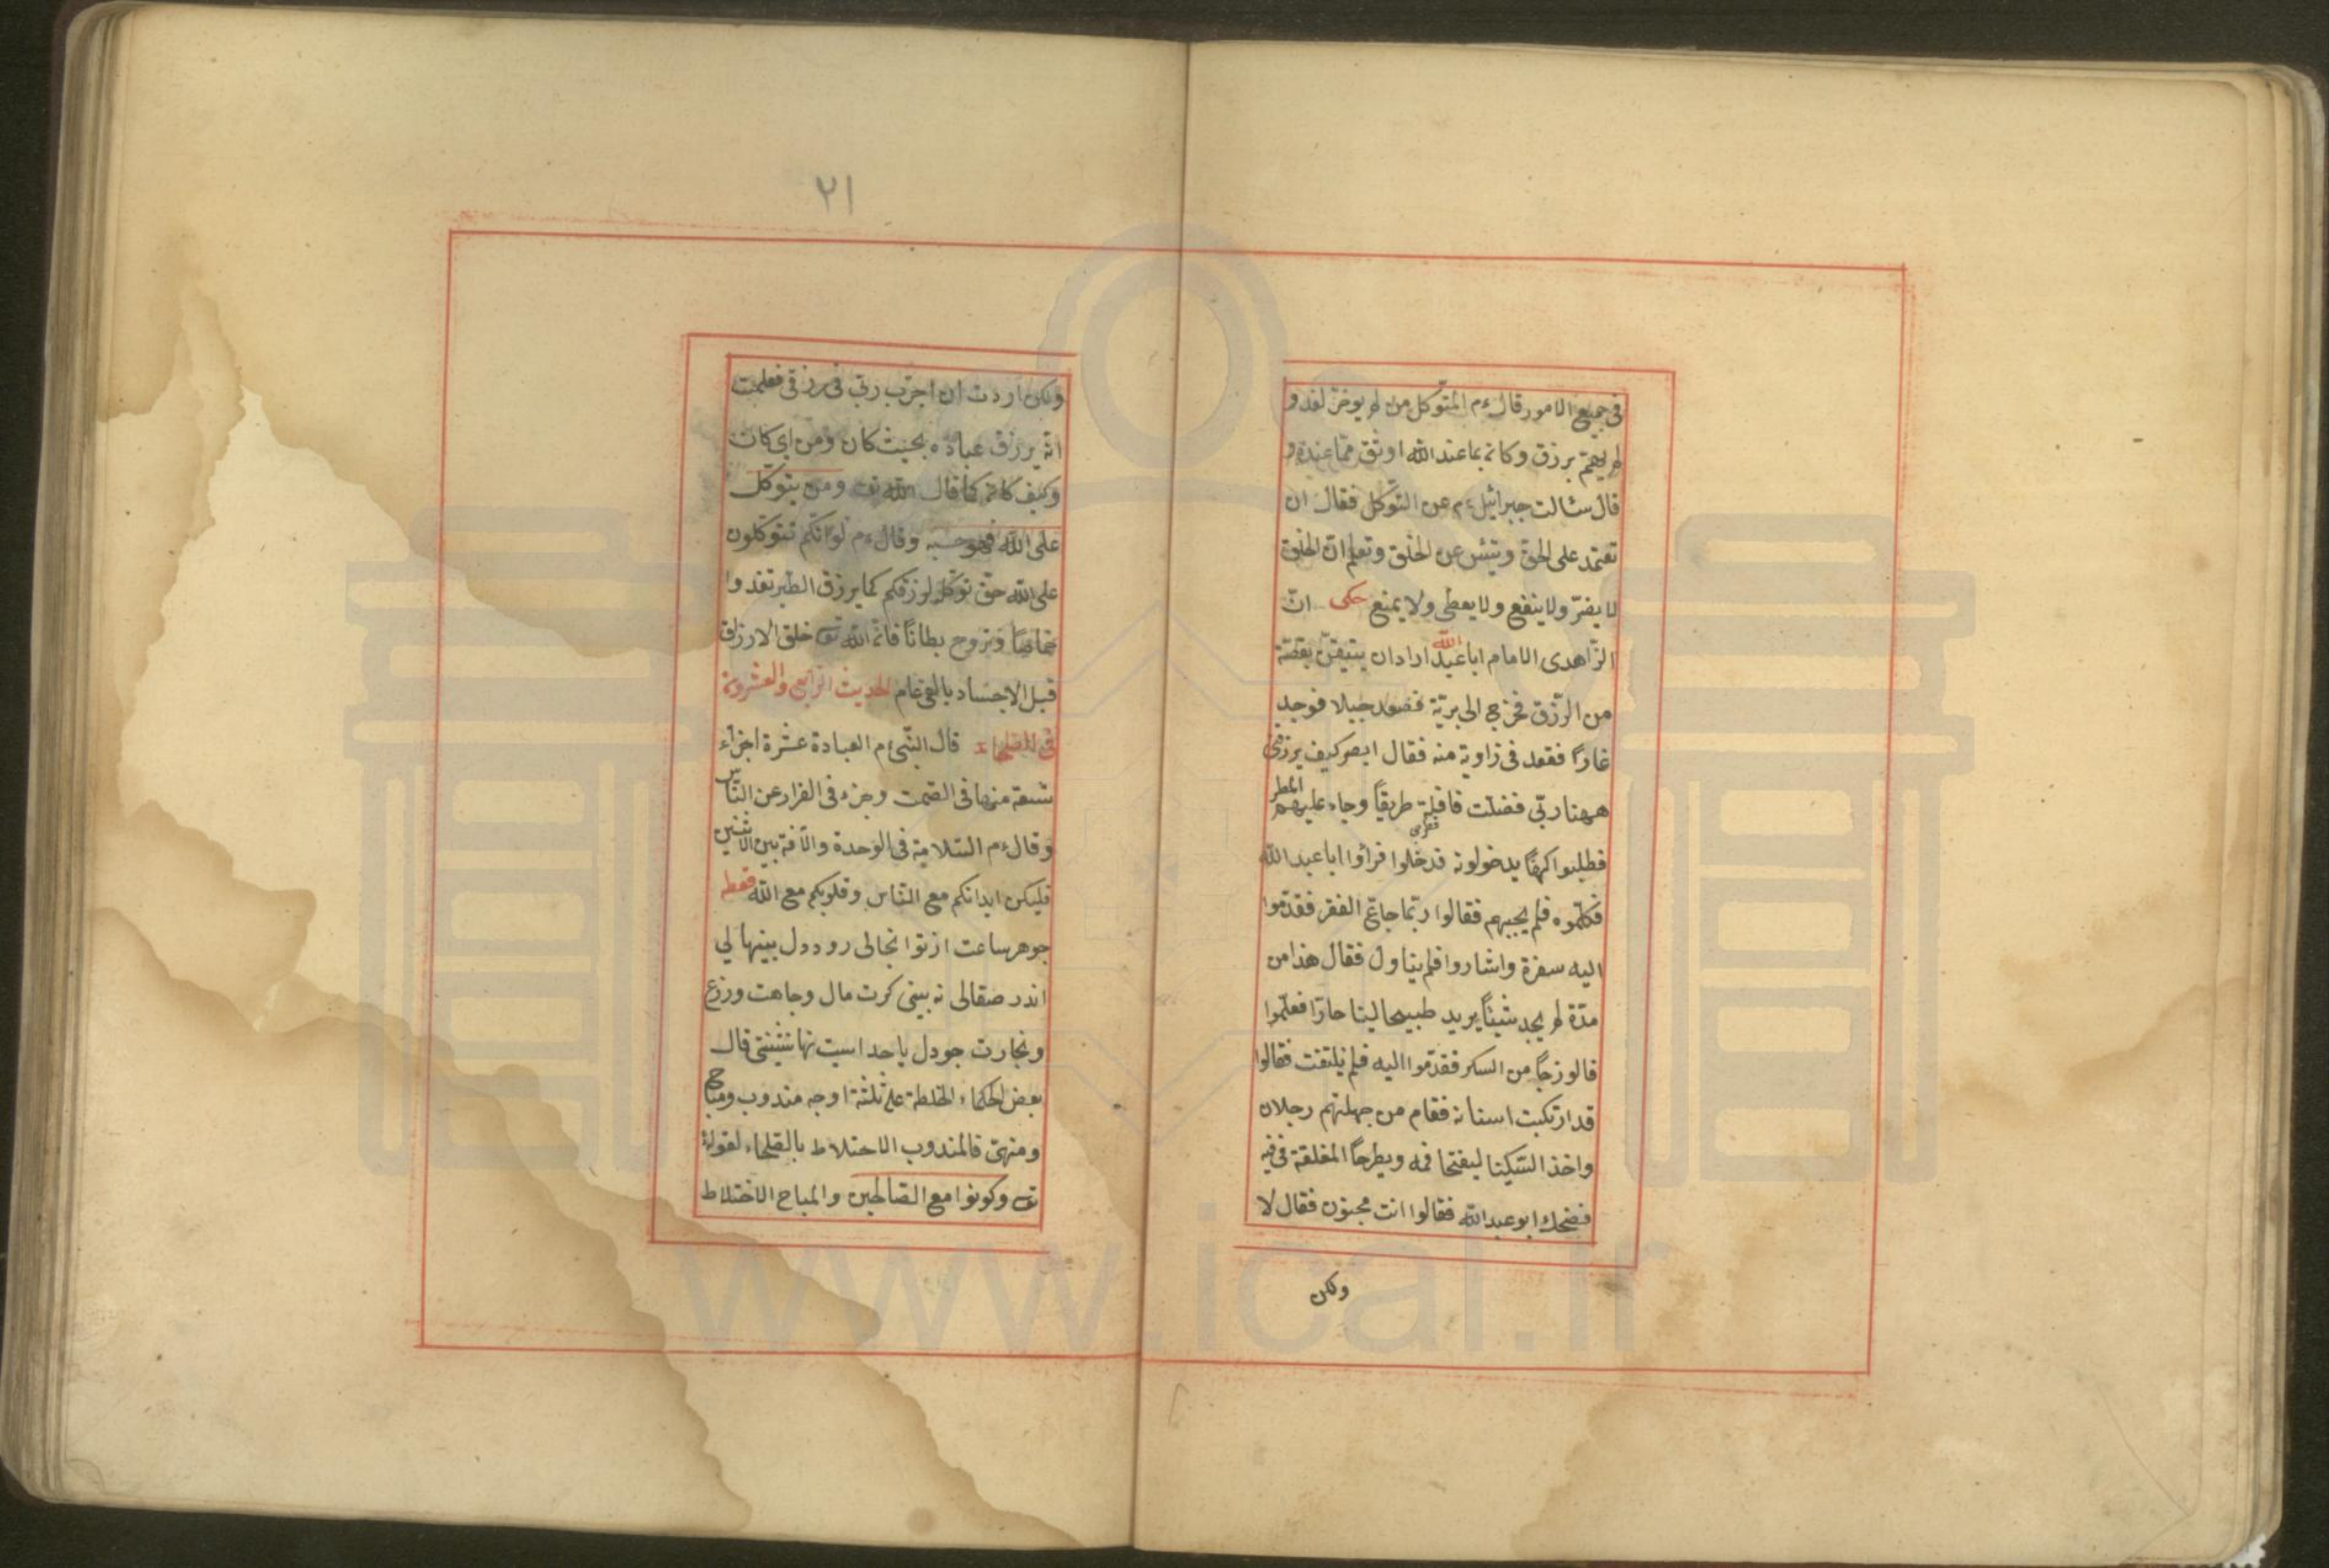 فى جميع الامور قال ءم المتوكل من لم يوخر لغد و
لم يهتم برزق وكان بما عند الله اوثق مما عنده و
قال سئالت جبرائيل ءم عن التوكل فقال ان
تعتمد على الحق وتيئس عن الخلق وتعلم ان الخلق
لا يضر ولا ينفع ولا يعطى ولا يمنع حكى ان
الزاهدى الامام ابا عبد الله اراد ان يتيقن بقصة
من الرزق فخرج الى برية فصعد جبلا فوجد
غارا فقعد فى زاوية منه فقال ابصر كيف يرزقنى
ههنا ربى فضلت قافلة طريقا وجاء عليهم المطر
فطلبوا كهفا يدخلونه قد دخلوا فراوا ابا عبد الله
فكلموه فلم يجيبهم فقالوا ربما جائع الفقر فقدموا
اليه سفرة واشاروا فلم يتاول فقال هذا من
مدة لم يجد شيئا يريد طبيحا لينا حارا فعلموا
فالوزجا من السكر فقدموا اليه فلم يلتفت فقالوا
قد ارتكبت اسنانه فقام من جهلتهم رجلان
واخذ السكينا ليفتحا فمه ويطرحا المغلقة فى فيه
فضحك ابو عبد الله فقالوا انت مجنون فقال لا
ولكن
٢١
ولكن اردت ان اجرب ربى فى رزقى فعلمت
انه يرزق عباده بحيث كان ومن اى كان
وكيف كان كما قال الله تع ومن يتوكل
على الله فهو حسبه وقال ءم لو انكم تتوكلون
على الله حق توكله لرزقكم كما يرزق الطير تغدوا
خماصا وتروح بطانا فان الله تع خلق الارزاق
قبل الاجساد بالفى عام الحديث الرابع والعشرون
فى الصلحاء قال النبى ءم العبادة عشرة اجزاء
تسعة منها فى الصمت وجزء فى الفرار عن الناس
وقال ءم السلامة فى الوحدة والآفة بين الاثنين
فليكن ابدانكم مع الناس وقلوبكم مع الله قطعه
جو هر ساعت از تو انجالى رود دل ببينها لى
اندر صفالى نه بينى كرت مال وجاهت وزرع
وتجارت جو دل با خداست تنها نشينى قال
بعض الحكماء الخلطة على ثلثة اوجه مندوب ومباح
ومنهى فالمندوب الاختلاط بالصلحاء لقوله
تع وكونوا مع الصالحين والمباح الاختلاط